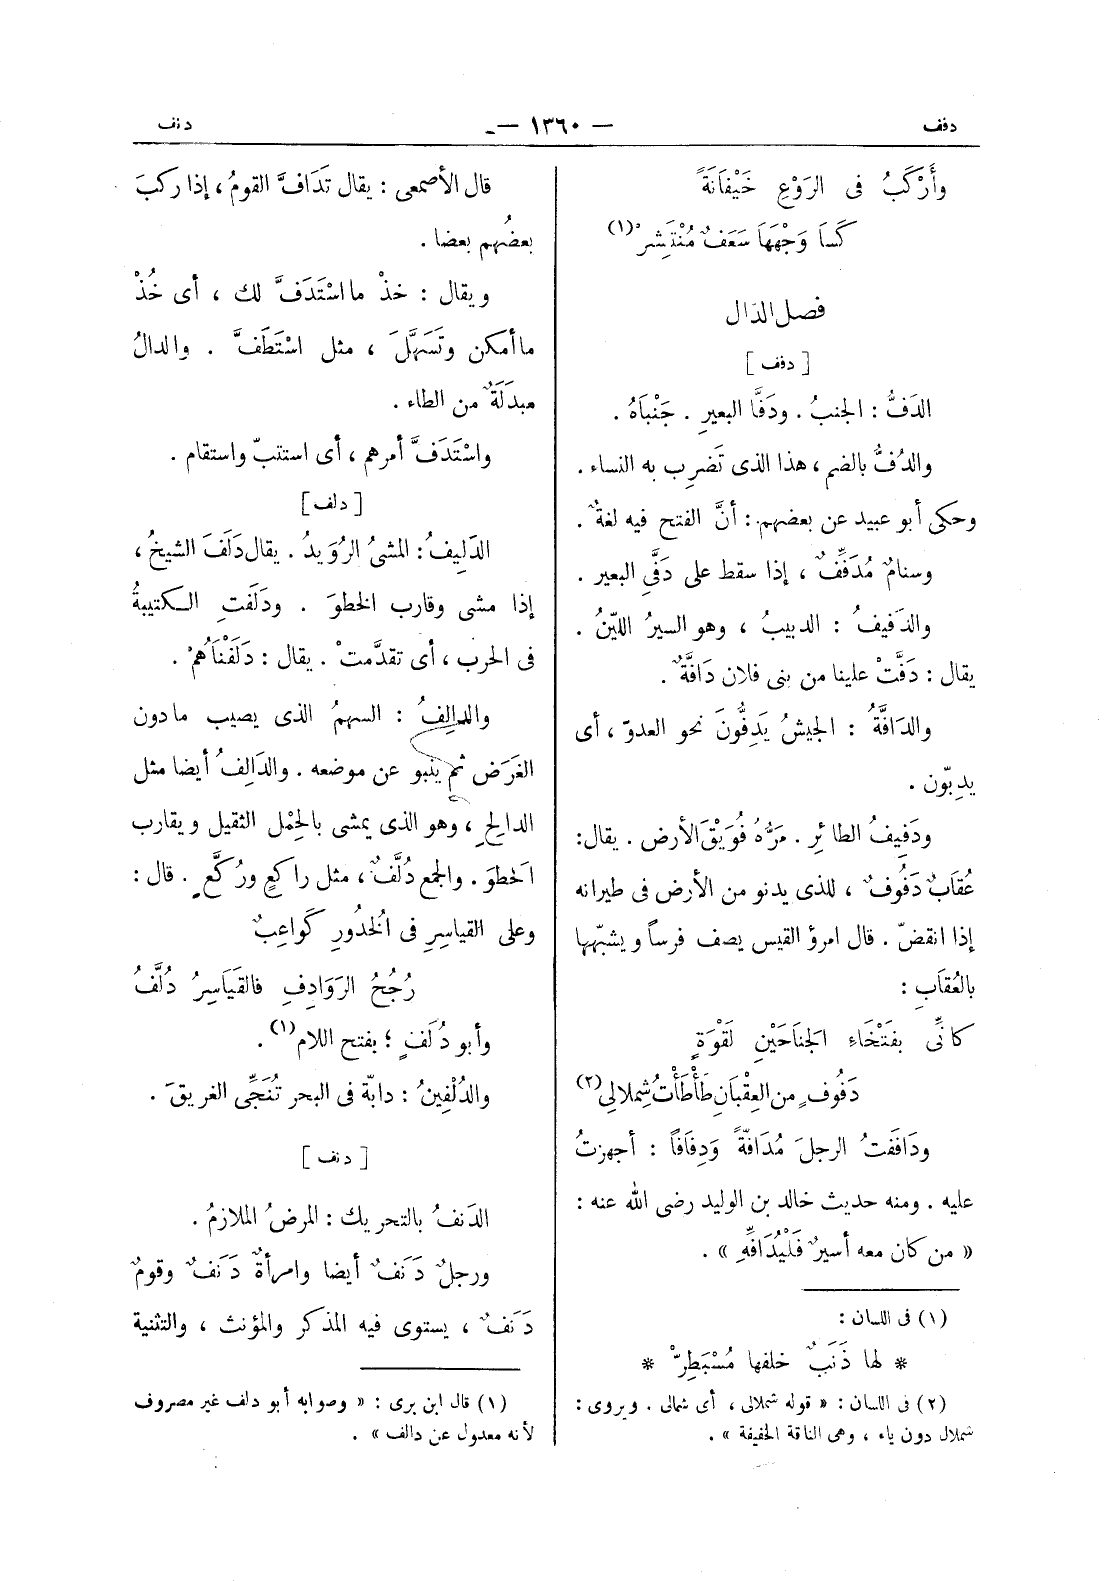 دفف
— ١٣٦٠ —
دنف
وأَرْكَبُ فى الرَوْعِ خَيْفَانَةً
كَسَا وَجْهَهَا سَعَفٌ مُنْتَشِرْ (١)
فصل الدّال
[ دفف ]
الدَفُّ : الجنبُ . ودَفَّا البعيرِ . جَنْبَاهُ .
والدُفُّ بالضم ، هذا الذى تَضرِب به النساء .
وحكى أبو عبيد عن بعضهم : أنَّ الفتح فيه لغةٌ .
وسنامٌ مُدَفِّفٌ ، إذا سقط على دَفَّىِ البعير .
والدَفيفُ : الدبيبُ ، وهو السيرُ الليّنُ .
يقال : دَفَّتْ علينا من بنى فلان دَافَّةٌ .
والدَافَّةُ : الجيشُ يَدِفُّونَ نحو العدوّ ، أى
يدِبّون .
ودَفِيفُ الطائِرِ . مَرُّهُ فُوَيْقَ الأرض . يقال :
عُقابٌ دَفُوفٌ ، للذى يدنو من الأرض فى طيرانه
إذا انقضّ . قال امرؤ القيس يصف فرساً ويشبّهها
بالعُقاَبِ :
كانِّى بفَتْخَاءِ الجناحَيْنِ لَقْوَةٍ
دَفُوفٍ من العِقْبَانِ طَأْطَأْتُ شِملالِى (٢)
ودَافَفتُ الرجلَ مُدَافّةً وَدِفَافاً : أجهزتُ
عليه . ومنه حديث خالد بن الوليد رضى الله عنه :
« من كان معه أسيرٌ فَلْيُدَافِّهِ » .
(١) فى اللسان :
* لها ذَنَبٌ خلفها مُسْبَطِرّْ *
(٢) فى اللسان : « قوله شملالى ، أى شمالى . ويروى :
شملال دون ياء ، وهى الناقة الخفيفة » .
قال الأصمعى : يقال تَدَافَّ القومُ ، إذا ركبَ
بعضُهم بعضا .
ويقال : خذْ ما اسْتَدَفَّ لك ، أى خُذْ
ما أمكن وتَسَهَّلَ ، مثل اسْتَطَفَّ . والدالُ
مبدَلَةٌ من الطاء .
واسْتَدَفَّ أمرهم ، أى استتبّ واستقام .
[ دلف ]
الدَلِيفُ : المشىُ الرُوَيدُ . يقال دَلَفَ الشيخُ ،
إذا مشى وقارب الخطوَ . ودَلَفتِ الكتيبةُ
فى الحرب ، أى تقدَّمتْ . يقال : دَلَفْنَاهُمْ .
والدالِفُ : السهمُ الذى يصيب ما دون
الغَرَض ثم ينبو عن موضعه . والدَالِفُ أيضا مثل
الدالحِ ، وهو الذى يمشى بالحِمْل الثقيل ويقارب
الخطوَ . والجمع دُلَّفٌ ، مثل راكعٍ ورُكَّعٍ . قال :
وعلى القياسِرِ فى الْخدُورِ كَواعِبٌ
رُجُحُ الرَوَادِفِ فالقَيَاسِرُ دُلَّفُ
وأبو دُلَفٍ ؛ بفتح اللام (١) .
والدُلْفِينُ : دابّة فى البحر تُنَجِّى الغريقَ .
[ دنف ]
الدَنفُ بالتحريك : المرضُ الملازمُ .
ورجلٌ دَنَفٌ أيضا وامرأةٌ دَنَفٌ وقومٌ
دَنَفٌ ، يستوى فيه المذكر والمؤنث ، والتثنية
(١) قال ابن برى : « وصوابه أبو دلف غير مصروف
لأنه معدول عن دالف » .